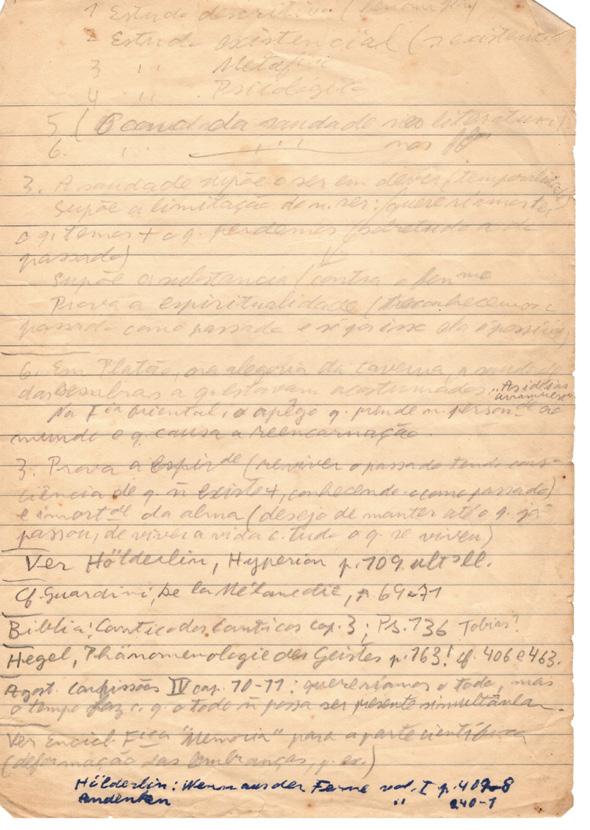 1 Estudo descritivo (
2 Estudo existencial (
3 '' Metafí
4 '' Psicológico
5 ( da saudade na literatura)
6. '' '' nas
3. A saudade supõe o ser em dever (temporalidade
Supõe a limitação do n. ser: quereríamos ter
o q. temos + o q. perdemos (sobretudo o do
passado)
Supõe a substancia (contra o
Prova a espiritualidade (reconhecemos o
passado como passado e
6. Em Platão, na alegoria da caverna, a saudade
das sombras a q. estavam acostumados. "As idéias
na F.ia oriental, o apêgo q. prende n. person.de ao
mundo e q. causa a reencarnação.
3. Prova a espir.de (reviver o passado tendo cons-
ciência de q. ñ existe +, conhecendo-o como passado)
e imort.de da alma (desejo de manter até o q. já
passou, de viver a vida c. tudo o q. se viveu)
Ver Hölderlin, Hyperion p. 109. ult
Cf. Guardini, De la Mélancolie, p. 69-71
Biblia: Cantico dos Canticos cap. 3; Ps. 136 Tobias!
Hegel, Phänomenologie des Geistes p. 163! cf. 406 e 463.
Agost. Confissões IV cap. 10-11: quereríamos o todo, mas
o tempo faz c. q. o todo ñ possa ser presente simultâneam.
Ver Encicl. F.ica "Memoria" para a parte científica
(deformação das lembranças, p. ex.)
Hölderlin: Wenn aus der Ferne vol. I p. 407-8
Andenken '' 240-1